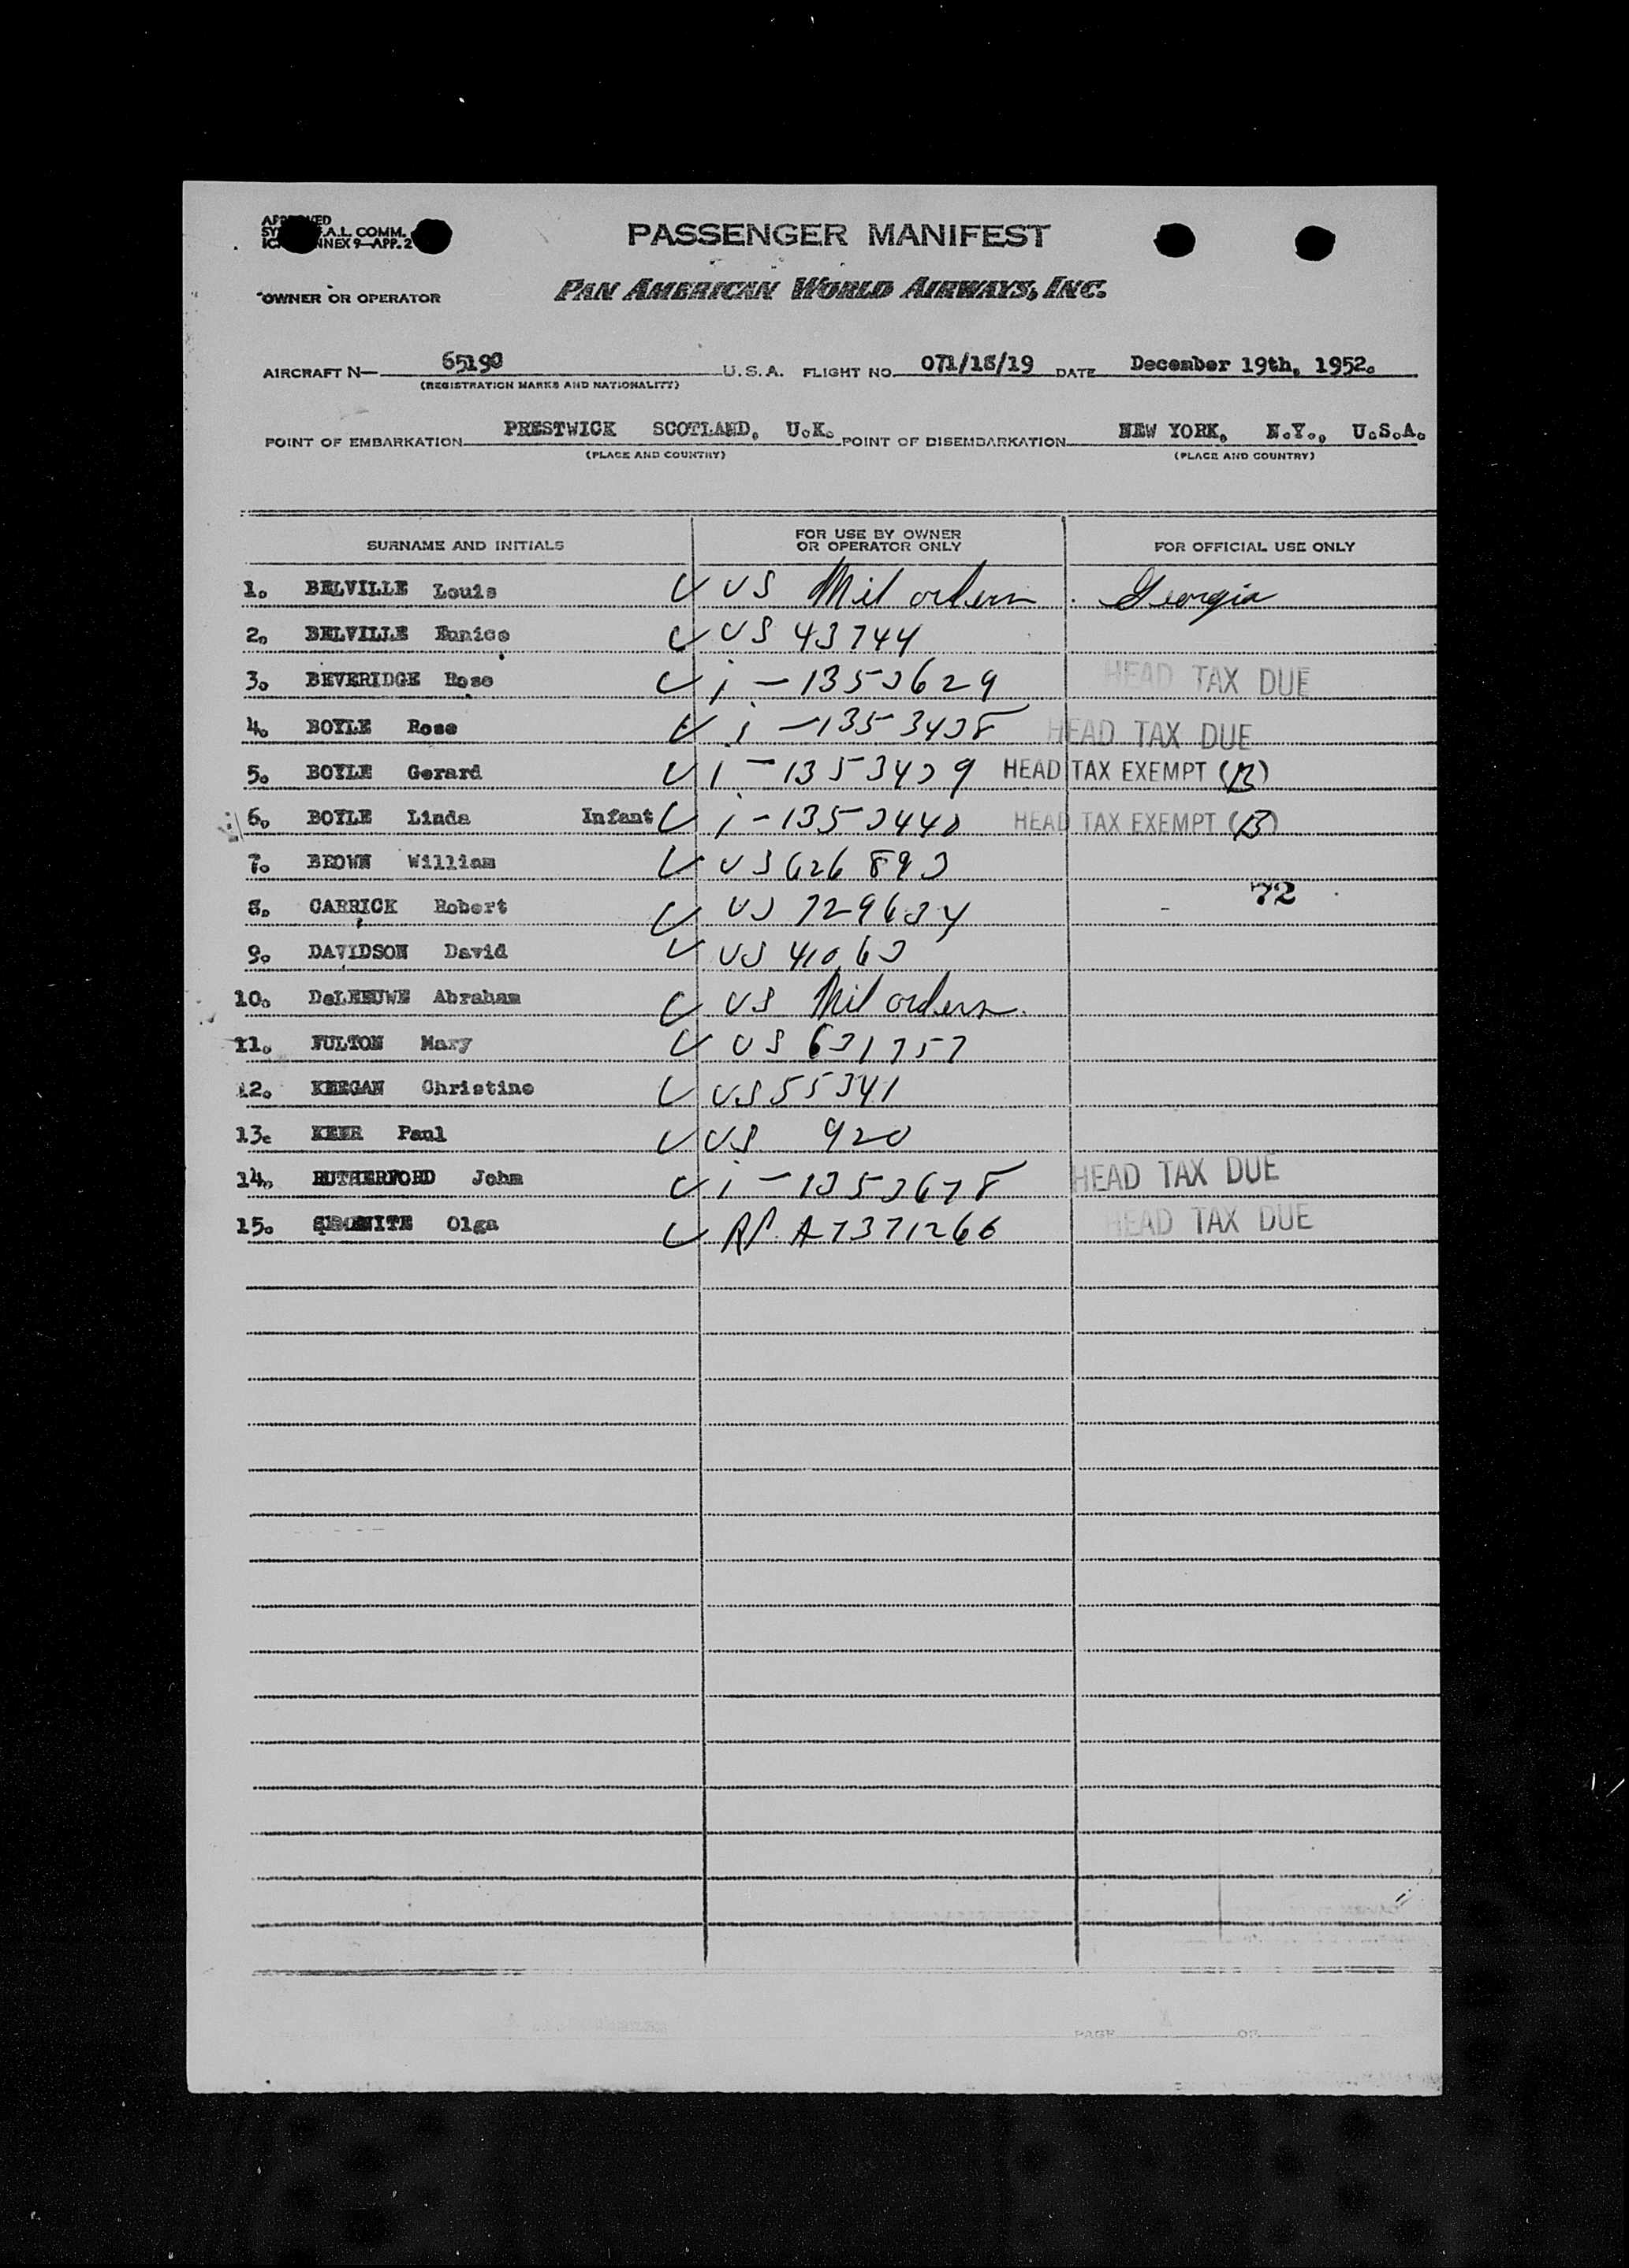 PASSENGER MANIFEST
F.A.L. COMM.
ANNEX 9—APP. 2
OWNER OR OPERATOR PAN AMERICAN WORLD AIRWAYS, INC.
AIRCRAFT N— 65190 U.S.A. FLIGHT NO. 071/18/19 DATE December 19th, 1952.
(REGISTRATION MARKS AND NATIONALITY)
POINT OF EMBARKATION PRESTWICK SCOTLAND, U.K. POINT OF DISEMBARKATION NEW YORK, N.Y., U.S.A.
(PLACE AND COUNTRY) (PLACE AND COUNTRY)
SURNAME AND INITIALS FOR USE BY OWNER OR OPERATOR ONLY FOR OFFICIAL USE ONLY
1. BELVILLE Louis US Mil orders Georgia
2. BELVILLE Eunice US 43744
3. BEVERIDGE Rose i-1353629 HEAD TAX DUE
4. BOYLE Rose i-1353438 HEAD TAX DUE
5. BOYLE Gerard i-1353439 HEAD TAX EXEMPT (B)
6. BOYLE Linda Infant i-1353440 HEAD TAX EXEMPT (B)
7. BROWN William US 626893
72
8. CARRICK Robert US 729634
9. DAVIDSON David US 41063
10. DeLEEUWE Abraham US Mil orders
11. FULTON Mary US 631757
12. KEEGAN Christine US 55341
13. KERR Paul US 920
14. RUTHERFORD John i-1353678 HEAD TAX DUE
15. Olga RP A7371266 HEAD TAX DUE
PAGE OF